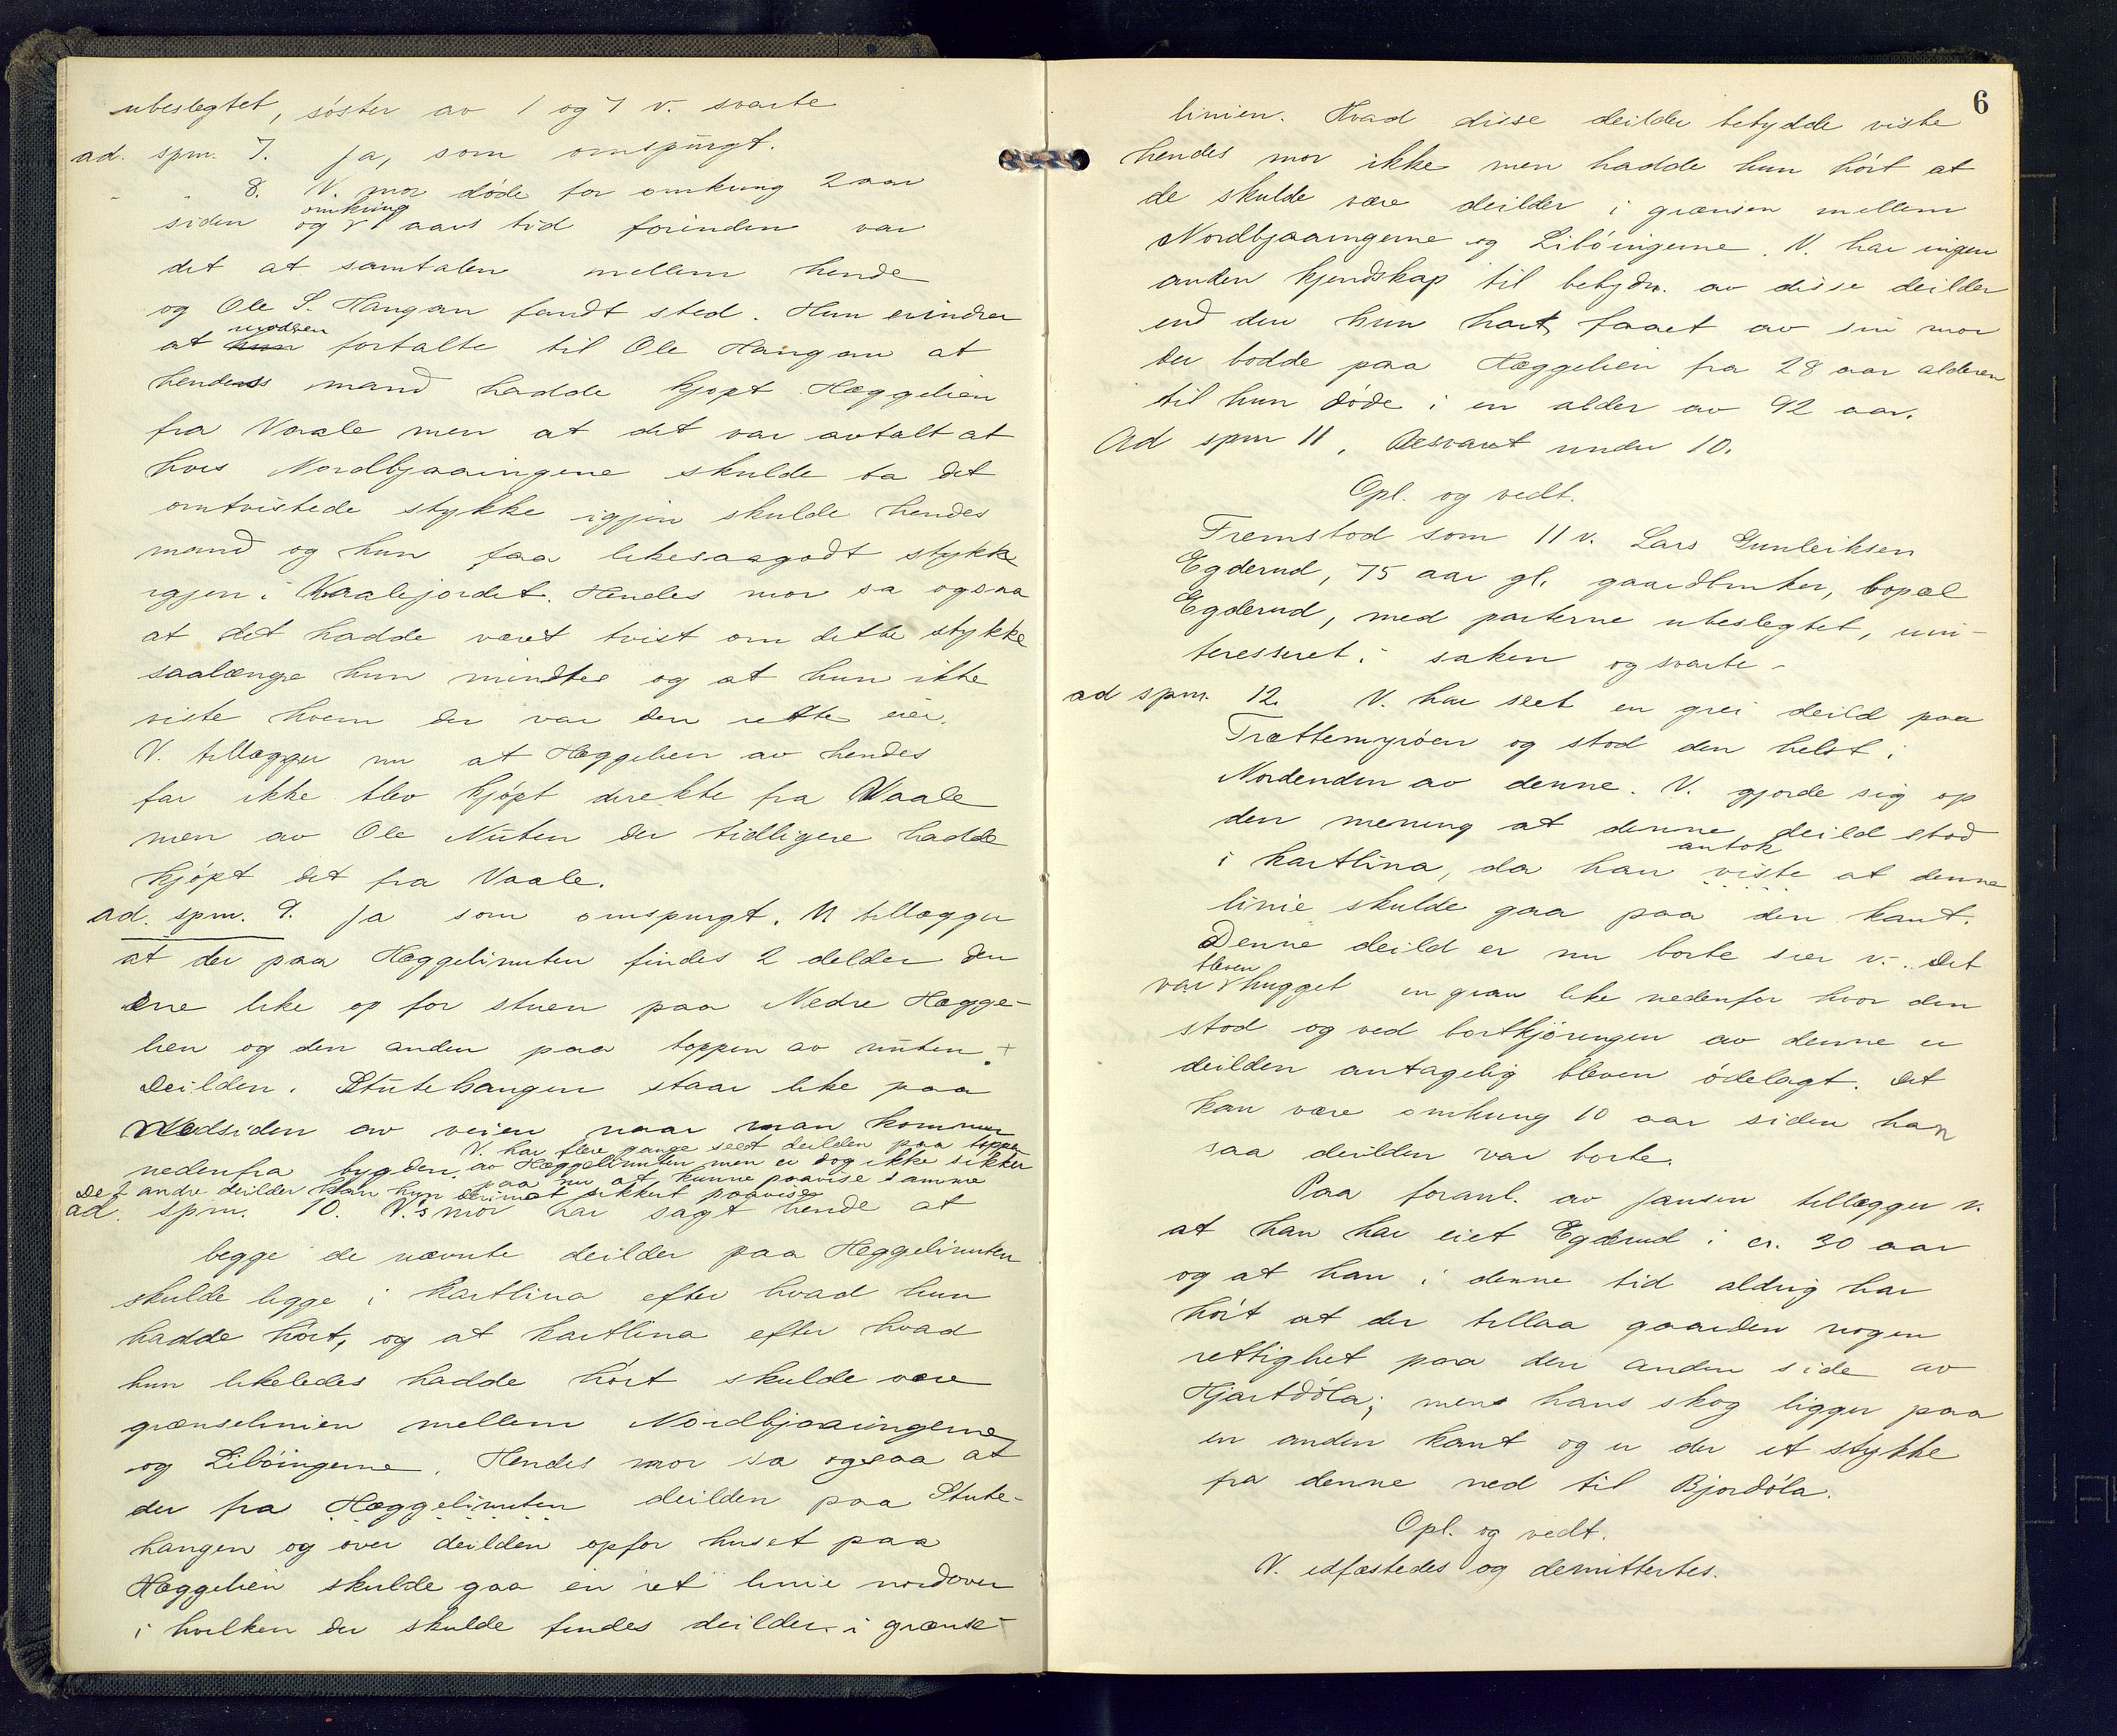 ubeslegtet, søster av 1 og 7 v. svarte
ad. spm. 7. Ja, som omspurgt.
" " 8. V. mor døde for omkring 2 aar
siden og omkring 1 aars tid forinden var
det at samtalen mellem hende
og Ole S. Haugan fandt sted. Hun erindrer
at moderen fortalte til Ole Haugan at
hendes mand hadde kjøpt Hæggelien
fra Vaale men at det var avtalt at
hvis Nordbjaaingene skulde ta det
omtvistede stykke igjen skulde hendes
mand og hun faa likesaagodt stykke
igjen i Vaalejordet. Hendes mor sa ogsaa
at det hadde været tvist om dette stykke
saalænge hun mindtes og at hun ikke
viste hvem der var den rette eier.
V. tillægger nu at Hæggelien av hendes
far ikke blev kjøpt direkte fra Vaale
men av Ole Nuten der tidligere hadde
kjøpt det fra Vaale.
ad. spm. 9. Ja som omspurgt. V. tillægger
at der paa Hæggelinuten findes 2 delder den
ene like op for stuen paa Nedre Hægge-
lien og den anden paa toppen av nuten. +
Deilden i Stutehaugen staar like paa
Nedsiden av veien naar man kommer
nedenfra bygden. V. har flere gange seet deilden paa toppen
av Hæggelinuten men er dog ikke sikker
paa nu at kunne paavise samme
De 2 andre deilder kan hun derimot sikkert paavise
ad. spm. 10. V.'s mor har sagt hende at
begge de nævnte deilder paa Hæggelinuten
skulde ligge i kartlina efter hvad hun
hadde hørt, og at kartlina efter hvad
hun likeledes hadde hørt skulde være
grænselinien mellem Nordbjaaingerne
og Libøingerne. Hendes mor sa ogsaa at
der fra Hæggelinuten deilden paa Stute-
haugen og over deilden opfor huset paa
Hæggelien skulde gaa en ret linie nordover
i hvilken der skulde findes deilder i grænse-
6
linien. Hvad disse deilder betydde viste
hendes mor ikke men hadde hun hørt at
de skulde være deilder i grænsen mellem
Nordbjaaingerne og Libøingerne. V. har ingen
anden kjendskap til betydn. av disse deilder
end den hun har faaet av sin mor
der bodde paa Hæggelien fra 28 aar alderen
til hun døde i en alder av 92 aar.
Ad spm 11. Besvaret under 10.
Opl. og vedt.
Fremstod som 11 v. Lars Gunleiksen
Egderud, 75 aar gl. gaardbruker, bopæl
Egderud, med parterne ubeslegtet, uin-
teresseret i saken og svarte -
ad spm. 12. V. har seet en grei deild paa
Trættemyrøen og stod den helst i
Nordenden av denne. V. gjorde sig op
den mening at denne deild stod
i kartlina, da han viste antok at denne
linie skulde gaa paa den kant.
Denne deild er nu borte sier v. Det
var bleven hugget en gran like nedenfor hvor den
stod og ved bortkjøringen av denne er
deilden antagelig bleven ødelagt. Det
kan være omkring 10 aar siden han
saa deilden var borte.
Paa foranl. av Jansen tillægger v.
at han har eiet Egderud i ca. 30 aar
og at han i denne tid aldrig har
hørt at der tillaa gaarden nogen
rettighet paa den anden side av
Hjartdøla; mens hans skog ligger paa
en anden kant og er der et stykke
fra denne ned til Bjordøla.
Opl. og vedt.
V. edfæstedes og demittertes.